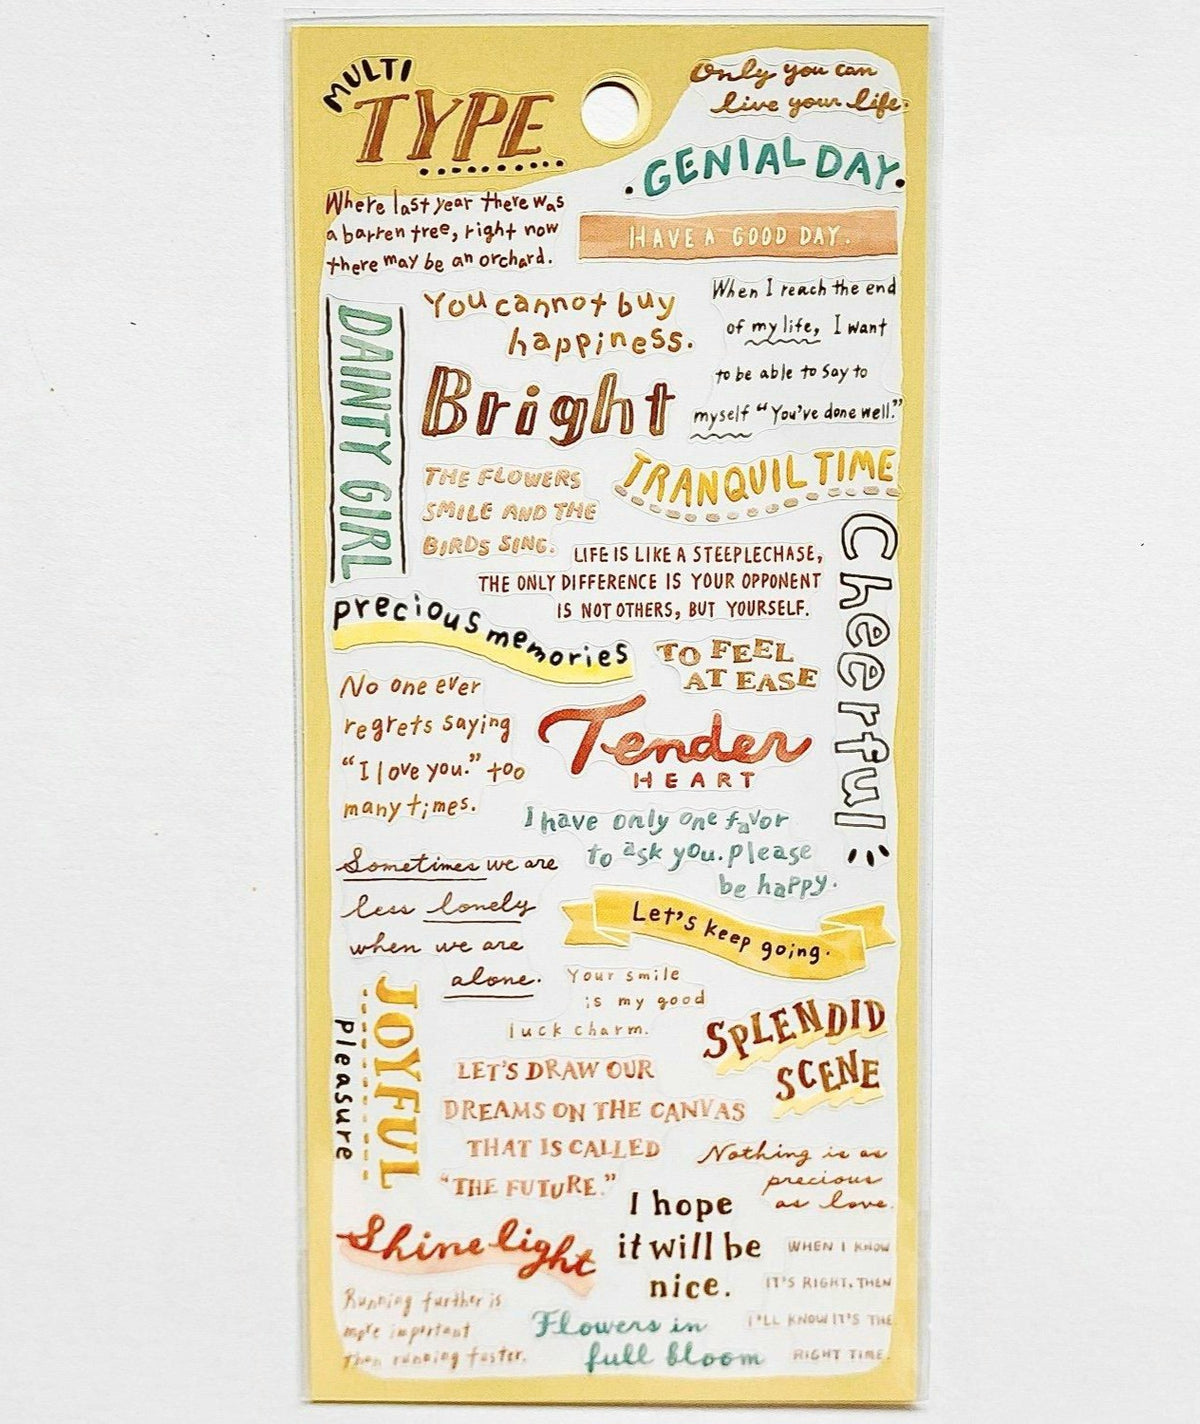 MULTI
TYPE
Only you can
live your life.
GENIAL DAY.
Where last year there was
a barren tree, right now
there may be an orchard.
HAVE A GOOD DAY.
You cannot buy
happiness.
When I reach the end
of my life, I want
to be able to say to
myself “You've done well.”
DAINTY GIRL
Bright
THE FLOWERS
SMILE AND THE
BIRDS SING.
TRANQUIL TIME
LIFE IS LIKE A STEEPLECHASE,
THE ONLY DIFFERENCE IS YOUR OPPONENT
IS NOT OTHERS, BUT YOURSELF.
Cheerful
precious memories
TO FEEL
AT EASE
No one ever
regrets saying
“I love you.” too
many times.
Tender
HEART
I have only one favor
to ask you. please
be happy.
Sometimes we are
less lonely
when we are
alone.
Let's keep going.
Your smile
is my good
luck charm.
JOYFUL
pleasure
SPLENDID
SCENE
LET'S DRAW OUR
DREAMS ON THE CANVAS
THAT IS CALLED
“THE FUTURE.”
Nothing is as
precious
as love.
I hope
it will be
nice.
Shine light
WHEN I KNOW
IT'S RIGHT, THEN
I'LL KNOW IT'S THE
RIGHT TIME.
Running further is
more important
than running faster.
Flowers in
full bloom